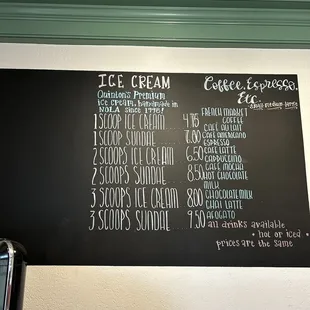 ICE CREAM
Quinton's Premium
ice cream, handmade in
NOLA since 1776!
1 SCOOP ICE CREAM 4.75
1 SCOOP SUNDAE 7.00
2 SCOOPS ICE CREAM 6.50
2 SCOOPS SUNDAE 8.50
3 SCOOPS ICE CREAM 8.00
3 SCOOPS SUNDAE 9.50
Coffee, Espresso,
Etc.
small medium large
FRENCH MARKET
COFFEE
CAFE AU LAIT
CAFE AMERICANO
ESPRESSO
CAFE LATTE
CAPPUCCINO
CAFE MOCHA
HOT CHOCOLATE
MILK
CHOCOLATE MILK
CHAI LATTE
AFOGATO
all drinks available
• hot or iced •
prices are the same